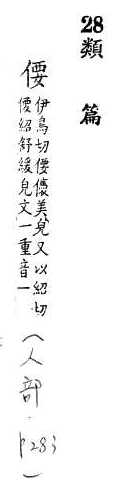 28 類篇
偠 伊鳥切偠儴美皃又以紹切
偠紹舒緩皃文一重音一
(人部·p283)